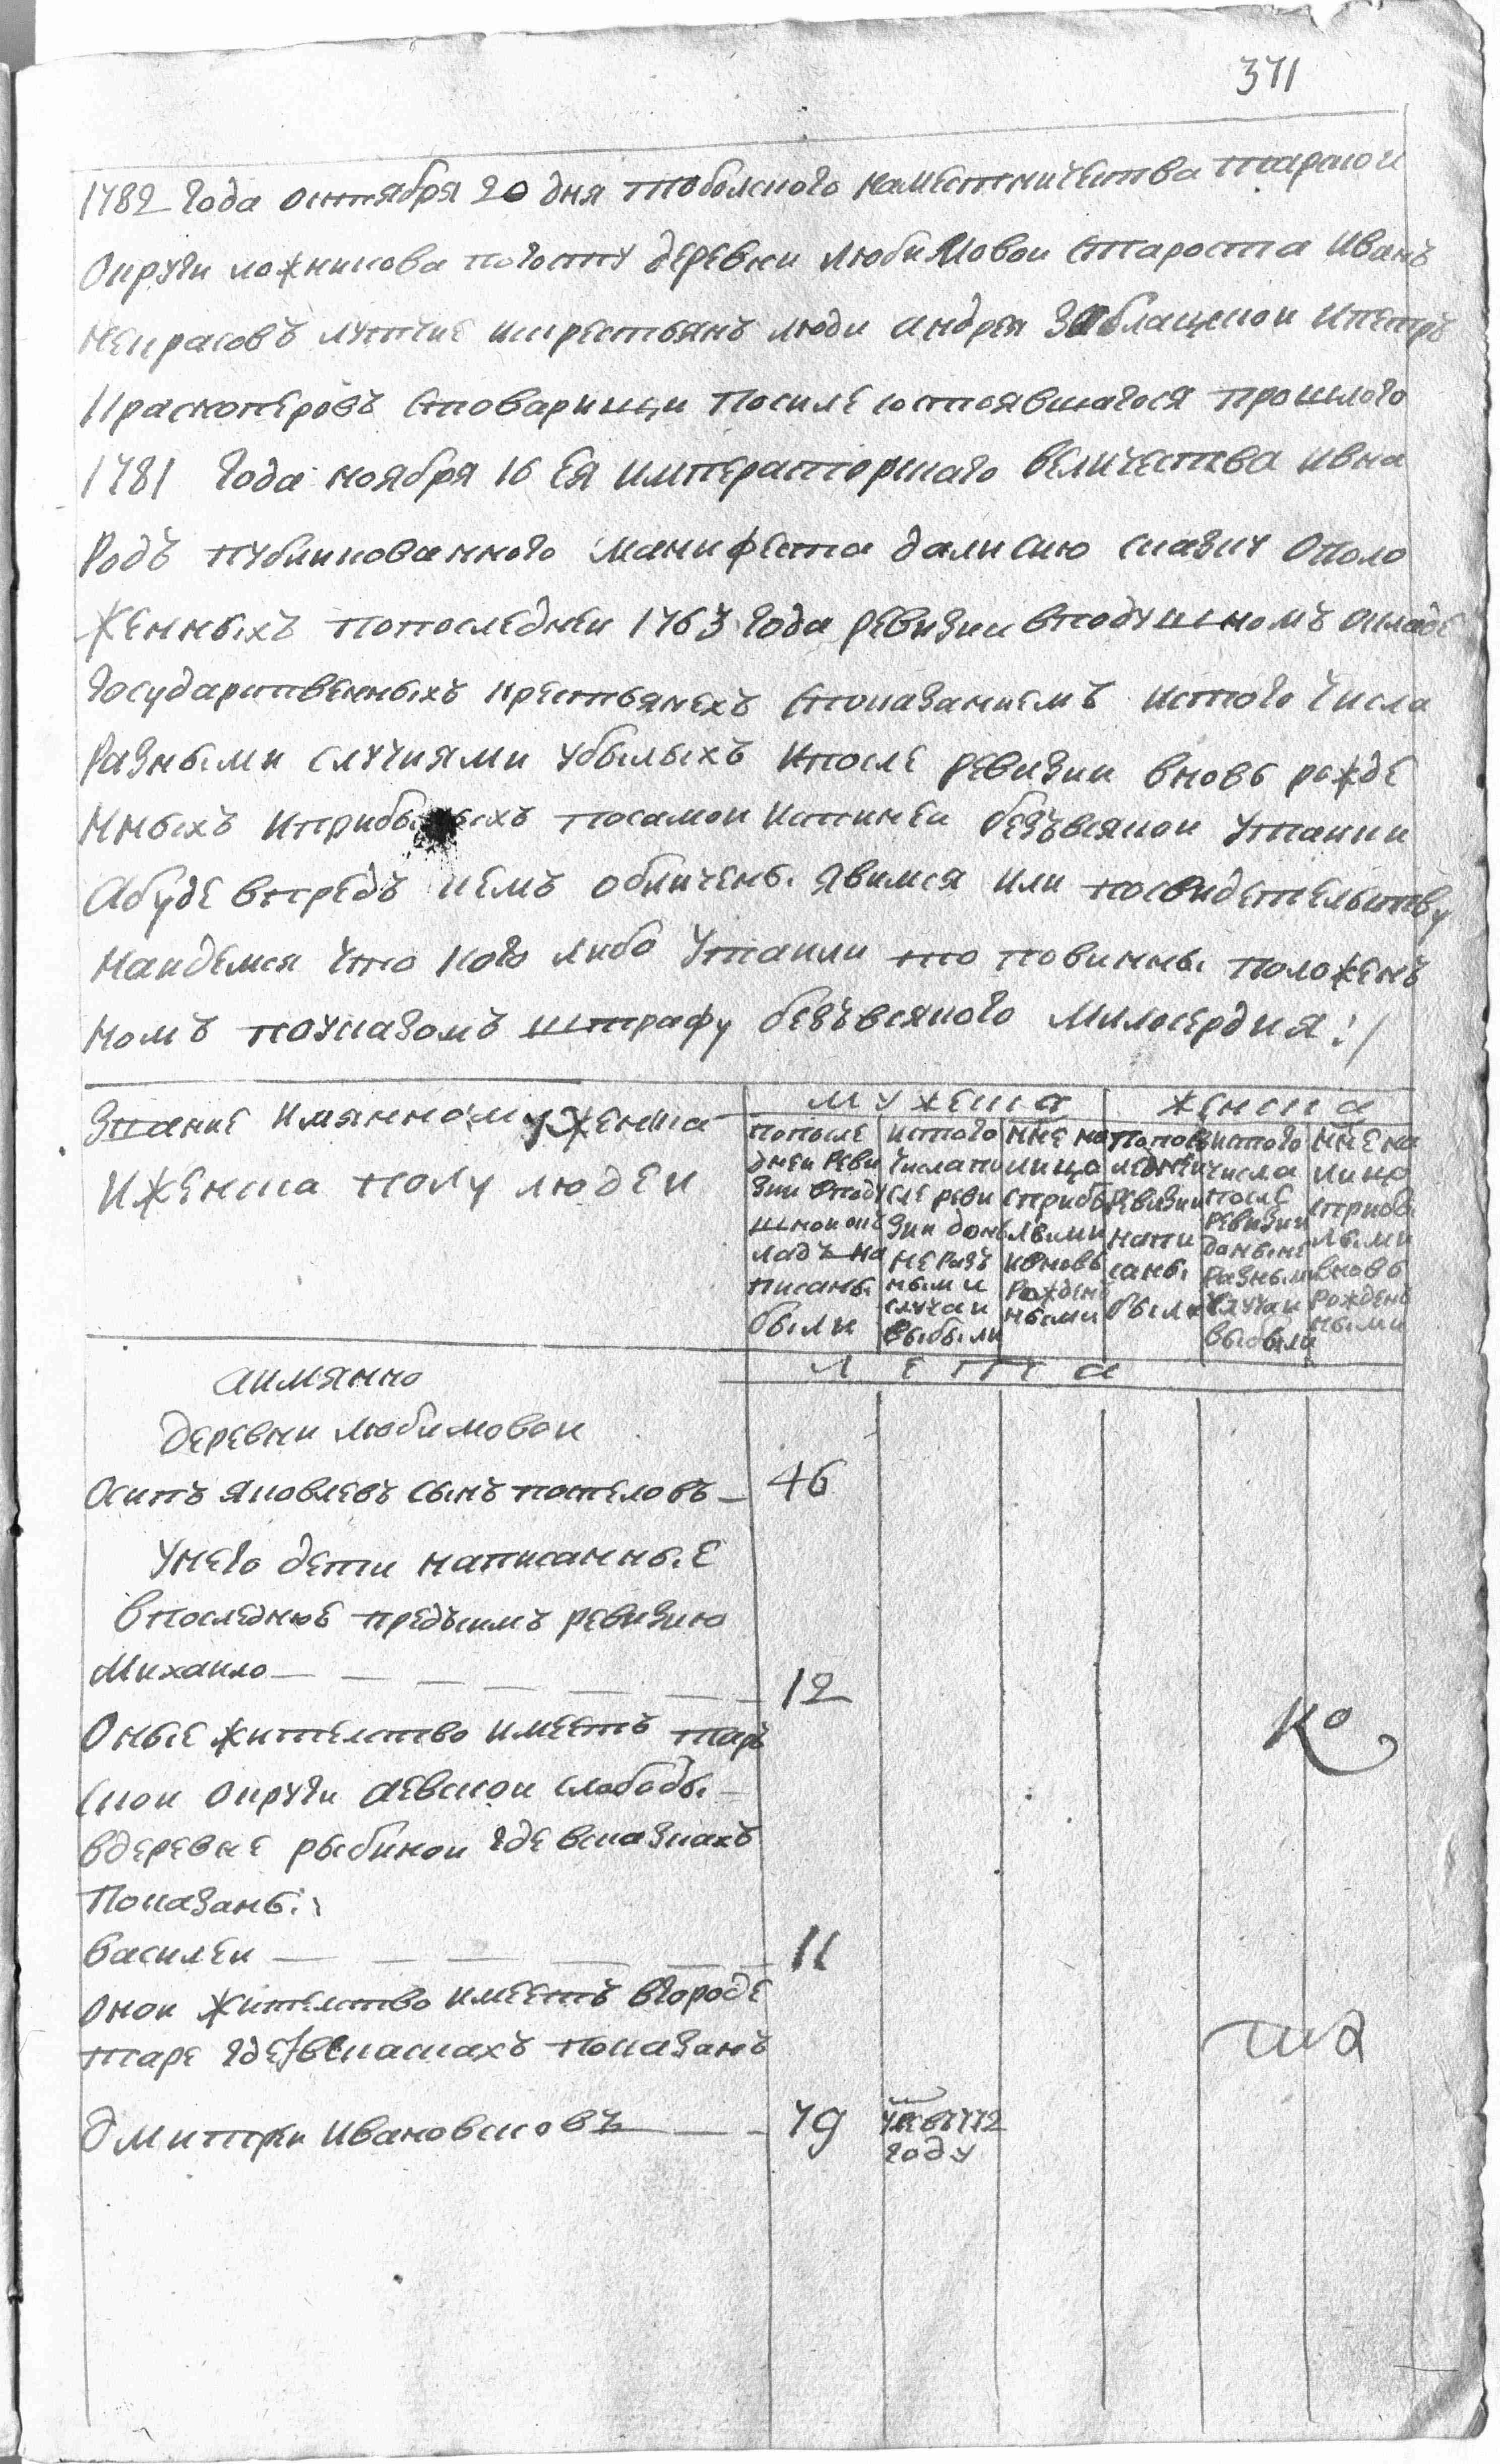 371
1782 года октября 20 дня тобольского наместничества тарской
Округи ложникова погосту деревни любимовой староста Иванъ
Некрасовъ лутчие искрестьянъ люди андрей Заблацкой ипетръ
Краскоперовъ стоварищи посиле состоявшагося прошлого
1781 года ноября 16 Ея императорскаго величества ивна
Родъ публикованного манифеста дали сию скаску Ополо
женныхъ попоследнеи 1763 года ревизии вподушномъ окладе
Государственныхъ крестьянехъ споказаниемъ истого числа
Разными случиями убылыхъ ипосле ревизии вновь рожде
нныхъ иприбылыхъ посамои истиннеи безъвсякои утаики
Абуде впредь кемъ обличены явимся или посвидетельству
Наидемся что кого либо утаили то повинны положен
номъ поуказомъ штрафу безъвсякого милосердия:/
Звание имянно мужеска
Иженска полу людеи
мужеска
попосле
днеи реви
зии вподу
шнои ок
ладъ на
писаны
были
истого
числа по
сле реви
зии доны
не раз
ными
случаи
выбыли
нне на
лицо
сприбы
лыми
ивновь
рожден
ными
женска
попос
леднеи
ревизии
напи
саны
были
истого
числа
после
ревизии
доныне
разными
случаи
выбыли
нне на
лицо
сприбы
лыми
вновь
рожден
ными
лета
аимянно
деревни любимовои
Осипъ яковлевъ сынъ попеловъ 46
Унего дети написанные
впоследнюе предъсимъ ревизию
Михаило 12
Оные жителство имеетъ тар
скои округи аевскои слободы
вдеревне рыбинои где всказкахъ
Показаны
василеи 11
Онои жителство имеетъ вгороде
таре где всказкахъ показанъ
дмитреи Ивановсковъ 79 умре в 1772
году